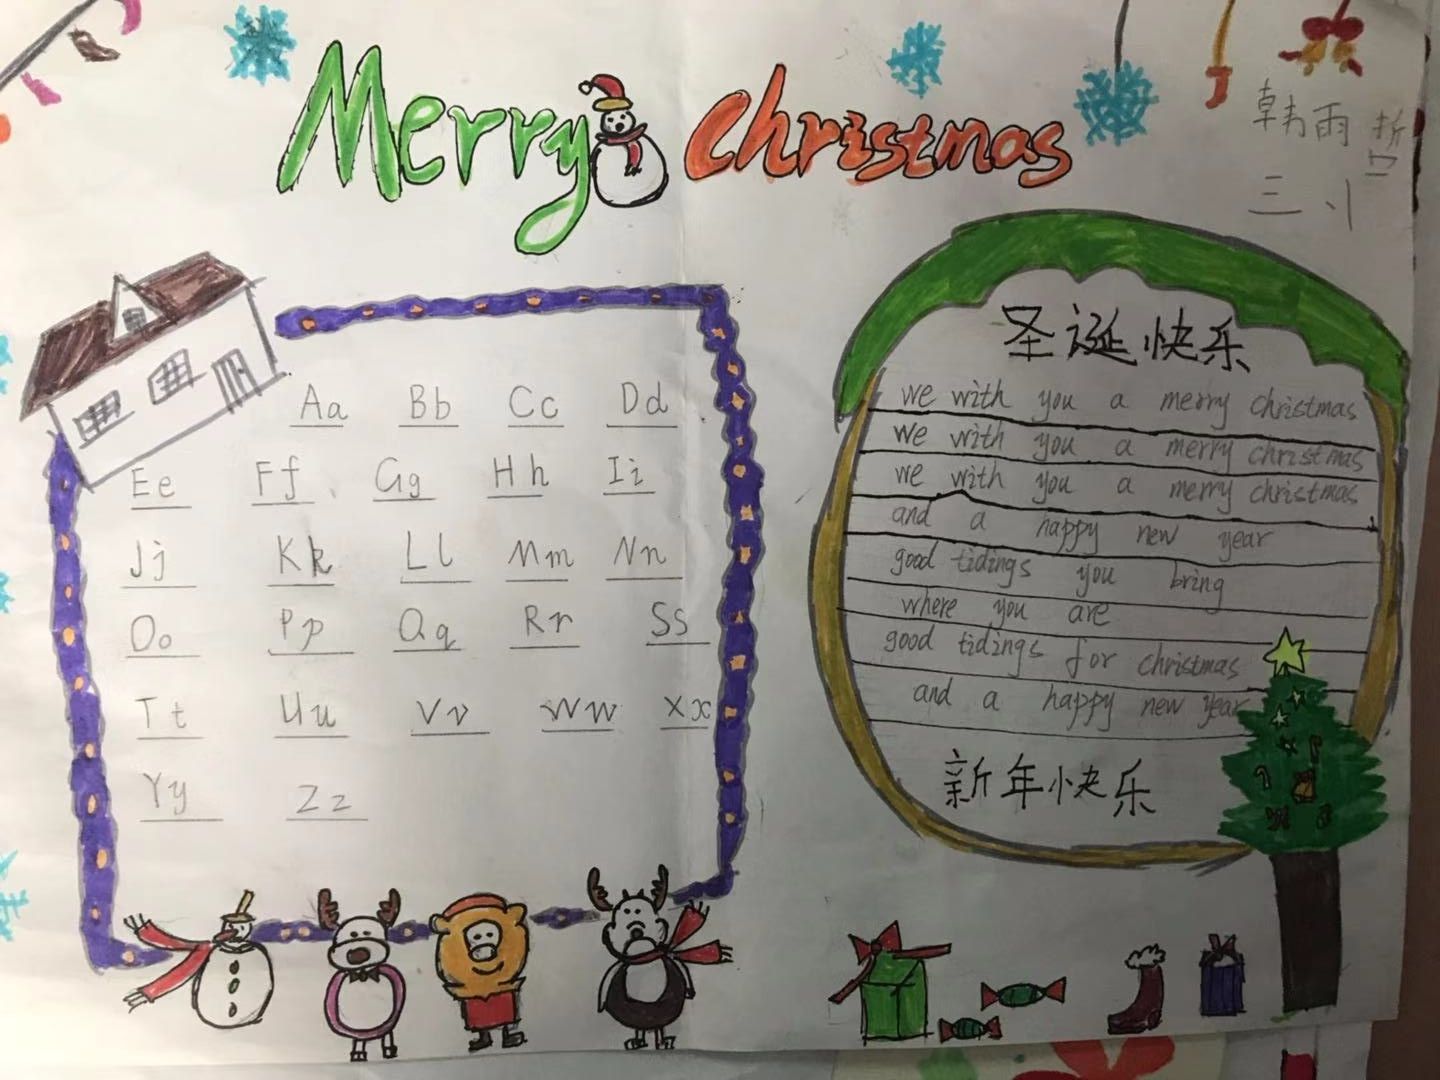 Merry Christmas
韩雨哲
三、八
Aa Bb Cc Dd
Ee Ff Gg Hh Ii
Jj Kk Ll Mm Nn
Oo Pp Qq Rr Ss
Tt Uu Vv Ww Xx
Yy Zz
圣诞快乐
we with you a merry christmas
we with you a merry christmas
we with you a merry christmas
and a happy new year
good tidings you bring
where you are
good tidings for christmas
and a happy new year
新年快乐